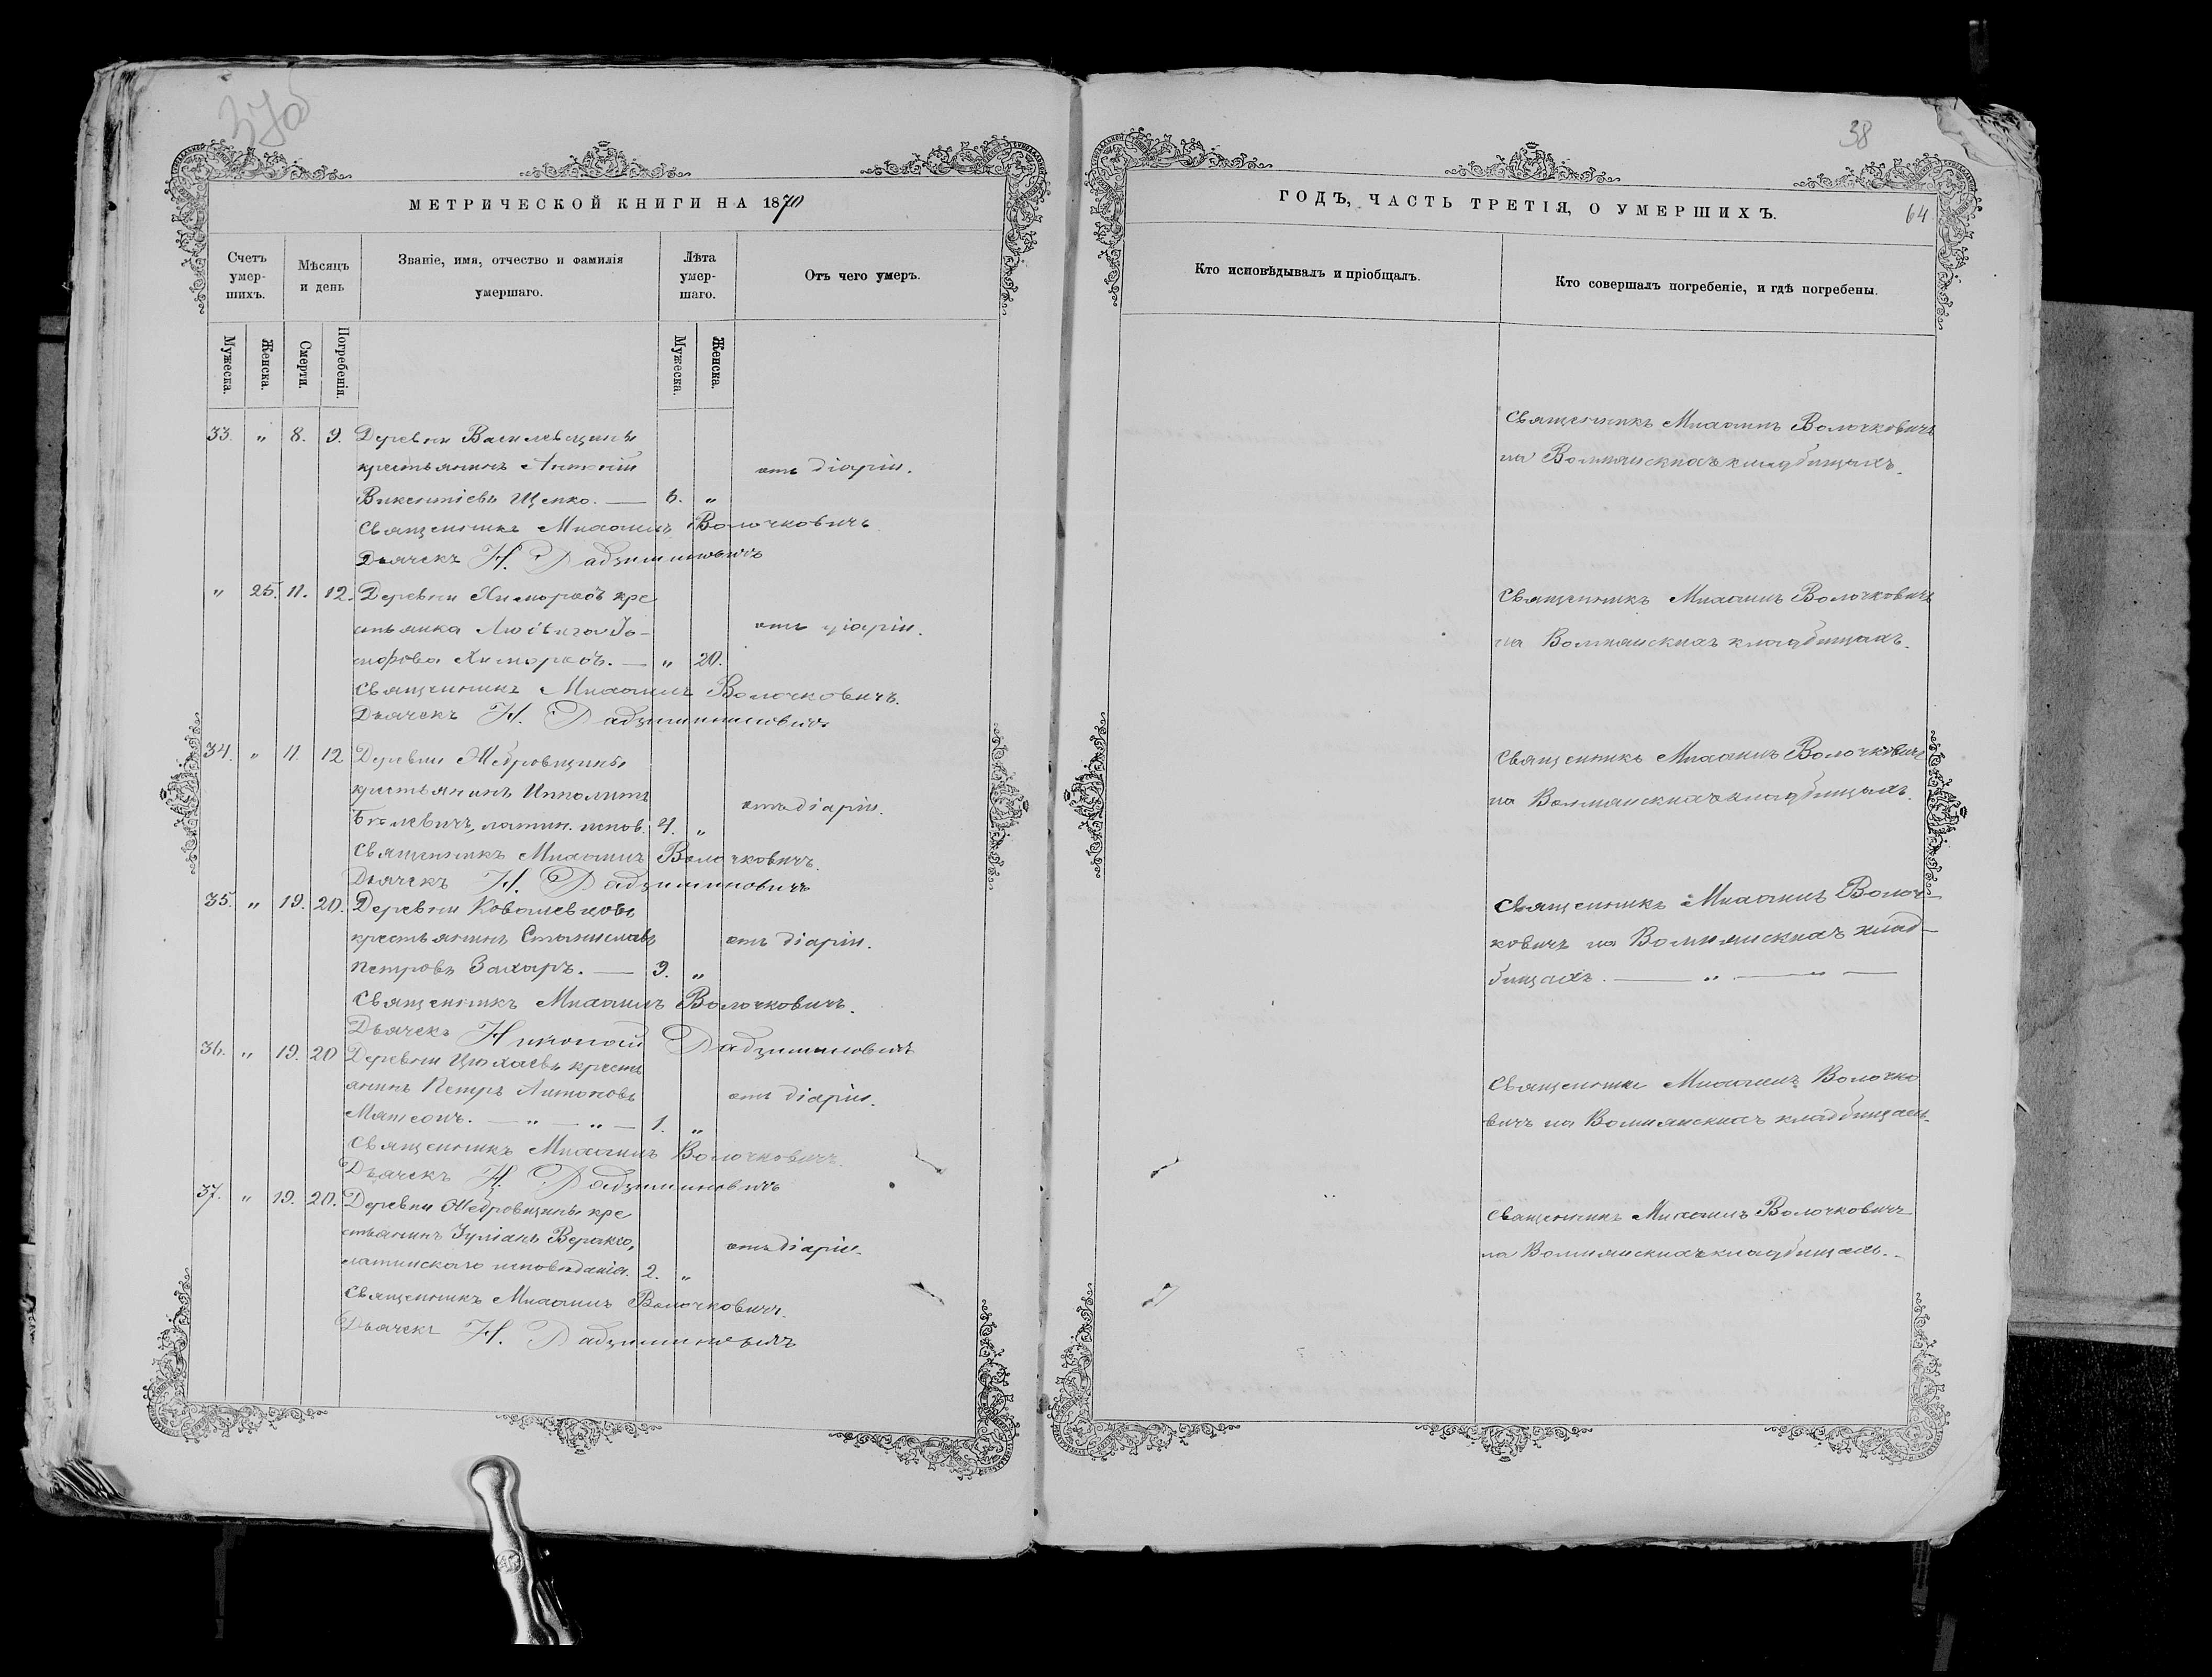 37об
МЕТРИЧЕСКОЙ КНИГИ НА 1870
Счетъ умер-шихъ.
Мѣсяцъ и день
Званіе, имя, отчество и фамилія умершаго.
Лѣта умер-шаго.
Отъ чего умеръ.
Мужеска.
Женска.
Смерти.
Погребенія.
Мужеска.
Женска.
33. " 8. 9. Деревни Василевщины
крестьянинъ Антоній
отъ діаріи.
Викентіевъ Щепко. — 6. "
Священникъ Михаилъ Волочковичъ
Дьячекъ Н. Дадзиминовичъ
" 25. 11. 12. Деревни Химорков кре
стьянка
отъ діаріи.
— " 20.
Священникъ Михаилъ Волочковичъ.
Дьячекъ Н. Дадзиминовичъ
34. " 11. 12 Деревни Жебровщины
крестьянинъ Ипполитъ
отъ діаріи.
латин. испов. 4. "
Священникъ Михаилъ Волочковичъ.
Дьячекъ Н. Дадзиминовичъ
35. " 19. 20. Деревни
крестьянинъ Станиславъ
отъ діаріи.
Петровъ Захаръ. — 9. "
Священникъ Михаилъ Волочковичъ.
Дьячекъ Николай Дадзиминовичъ
36. " 19. 20 Деревни Цюхаевъ кресть
янинъ Петръ Антоновъ
отъ діаріи.
— " — " — 1. "
Священникъ Михаилъ Волочковичъ.
Дьячекъ Н. Дадзиминовичъ
37. " 19. 20. Деревни Жебровщины кре
стьянинъ Іуліанъ
отъ діаріи.
латинскаго исповѣданія. 2. "
Священникъ Михаилъ Волочковичъ.
Дьячекъ Н. Дадзиминовичъ
38
ГОДЪ, ЧАСТЬ ТРЕТІЯ, О УМЕРШИХЪ.
64
Кто исповѣдывалъ и пріобщалъ.
Кто совершалъ погребеніе, и гдѣ погребены.
Священникъ Михаилъ Волочковичъ
на Волпянскихъ кладбищахъ.
Священникъ Михаилъ Волочковичъ
на Волпянскихъ кладбищахъ.
Священникъ Михаилъ Волочковичъ
на Волпянскихъ кладбищахъ.
Священникъ Михаилъ Волоч-
ковичъ на Волпянскихъ клад-
бищахъ. — " — " —
Священникъ Михаилъ Волочко
вичъ на Волпянскихъ кладбищахъ.
Священникъ Михаилъ Волочковичъ
на Волпянскихъ кладбищахъ.